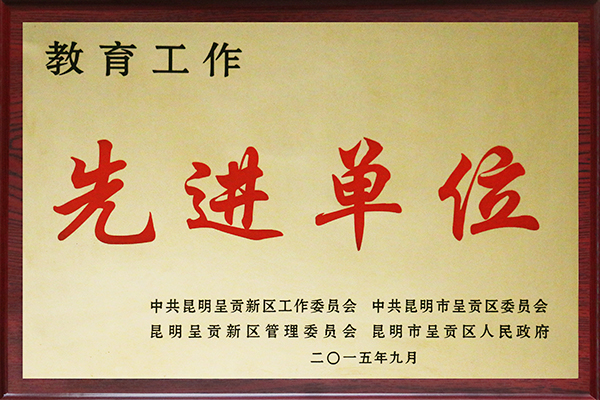 教育工作
先进单位
中共昆明呈贡新区工作委员会 中共昆明市呈贡区委员会
昆明呈贡新区管理委员会 昆明市呈贡区人民政府
二〇一五年九月